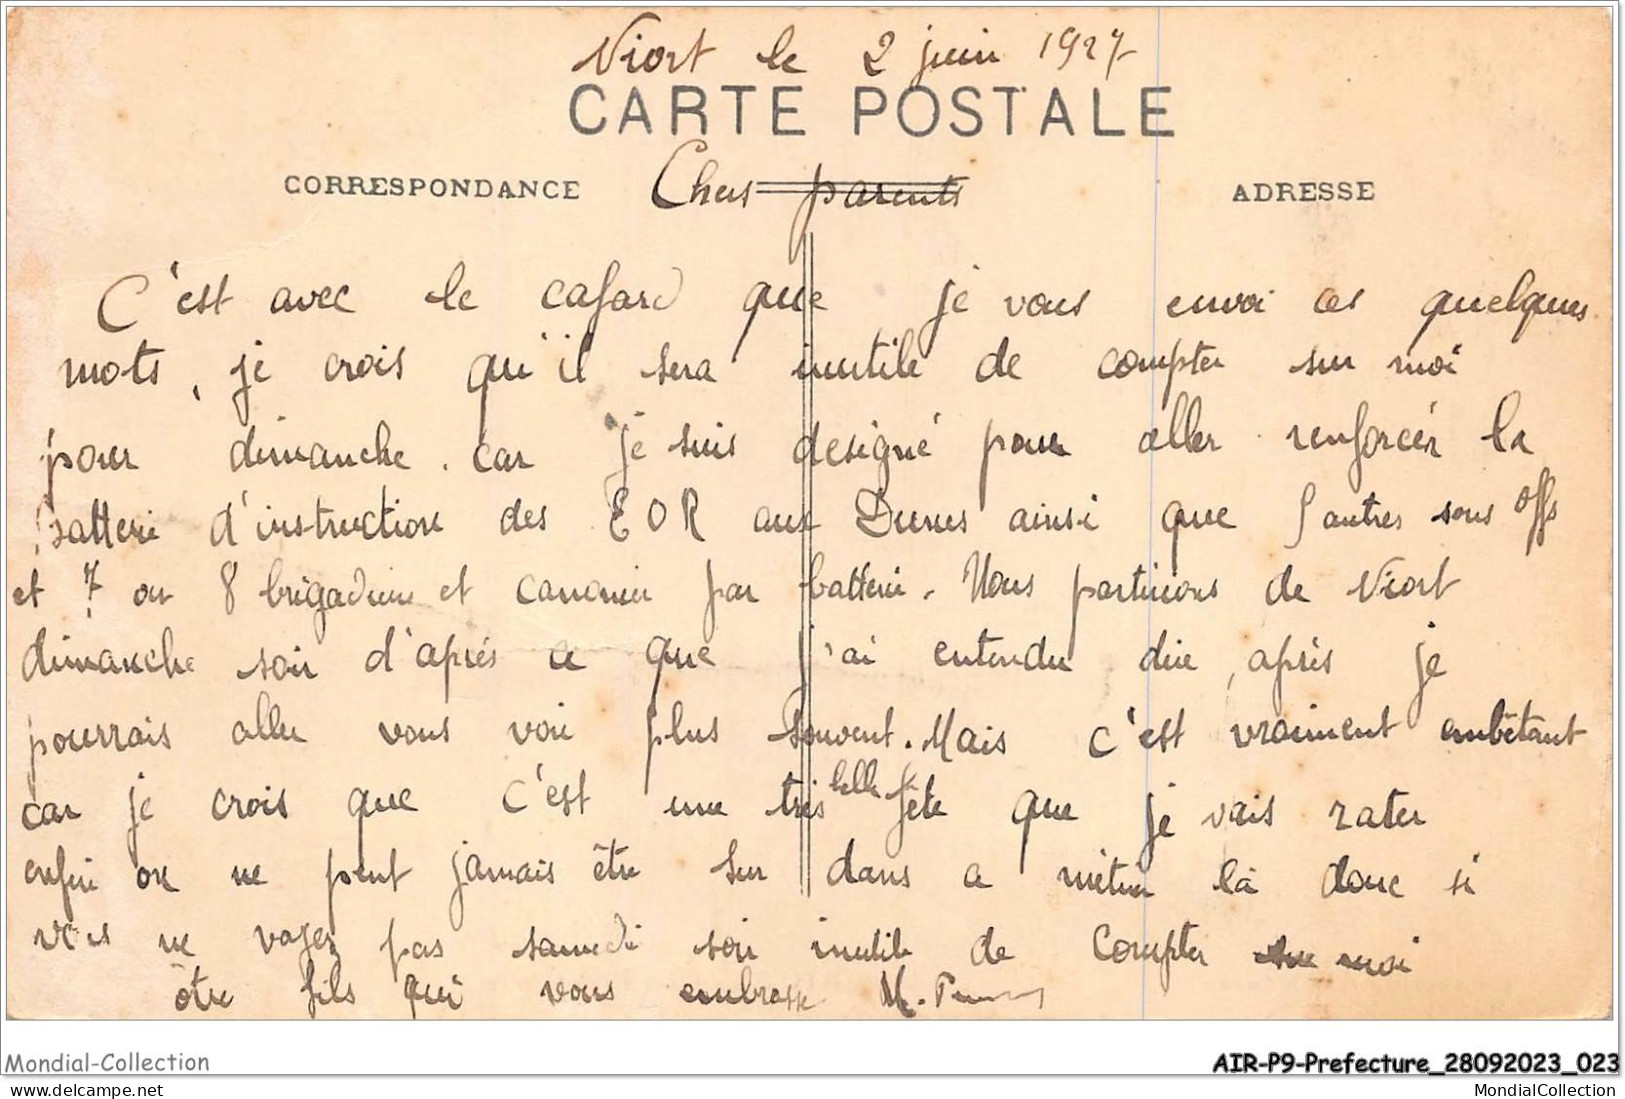 Niort le 2 juin 1927
CARTE POSTALE
CORRESPONDANCE
Chers parents
ADRESSE
C'est avec le cafard que je vous envoi ces quelques
mots, je crois qu'il sera inutile de compter sur moi
pour dimanche. car je suis designé pour aller renforcér la
batterie d'instruction des EOR aux Dunes ainsi que 5 autres sous offs
et 7 ou 8 brigadiers et canonier par batterie. Nous partirions de Niort
dimanche soir d'après ce que j'ai entendu dire, après je
pourrais aller vous voir plus souvent. Mais c'est vraiment embêtant
car je crois que c'est une très belle fête que je vais rater
enfin on ne peut jamais être sur dans ce métier là donc si
vous ne voyez pas samedi soir inutile de compter sur moi
ôtre fils qui vous embrasse M.
Mondial-Collection
AIR-P9-Prefecture_28092023_023
delcampe.net
MondialCollection